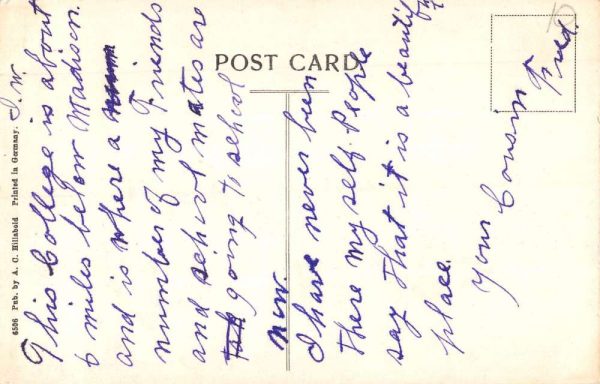 POST CARD
6596 Pub. by A. C. Hillabold Printed in Germany.
This College is about
6 miles below Madison.
and is where a
number of my Friends
and school mates are
going to school
now.
I have never been
There my self. People
say That it is a beautiful
place.
Your Cousin
Fred.